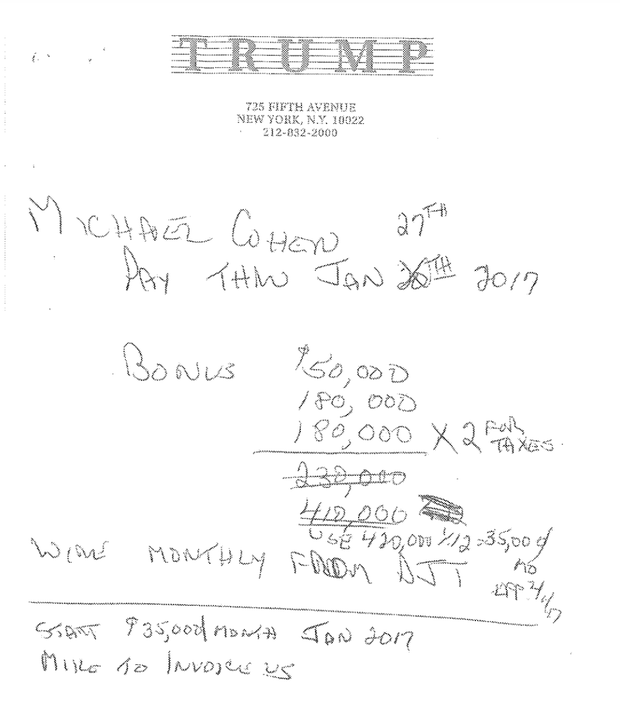 TRUMP
725 FIFTH AVENUE
NEW YORK, N.Y. 10022
212-832-2000
MICHAEL COHEN 27TH
PAY THRU JAN TH 2017
BONUS $50,000
180,000
180,000 X 2 FOR TAXES
230,000
410,000
USE 420,000 1/12 = 35,000/
WIRE MONTHLY FROM DJT MO
EFF 2/1/17
START $35,000/MONTH JAN 2017
MIKE TO INVOICE US